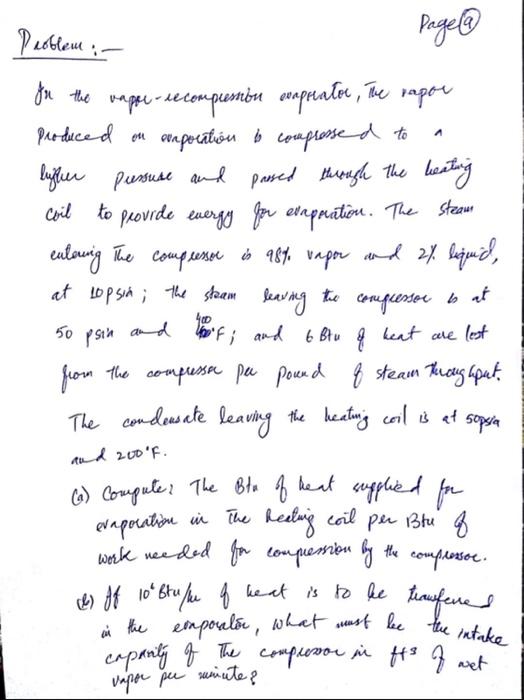 Page (9)
Problem :-
In the vapor-recompression evaporator, The vapor
Produced on evaporation is compressed to a
higher pressure and passed through the heating
coil to provide energy for evaporation. The steam
entering The compressor is 98% vapor and 2% liquid,
at 10 psia; the steam leaving the compressor is at
50 psia and 400°F; and 6 Btu of heat are lost
from the compressor per pound of steam throughput.
The condensate leaving the heating coil is at 50psia
and 200°F.
(a) Compute: The Btu of heat supplied for
evaporation in The heating coil per Btu of
work needed for compression by the compressor.
(b) If 10⁶ Btu/hr of heat is to be transferred
in the evaporator, what must be the intake
capacity of The compressor in ft3 of wet
vapor per minute?